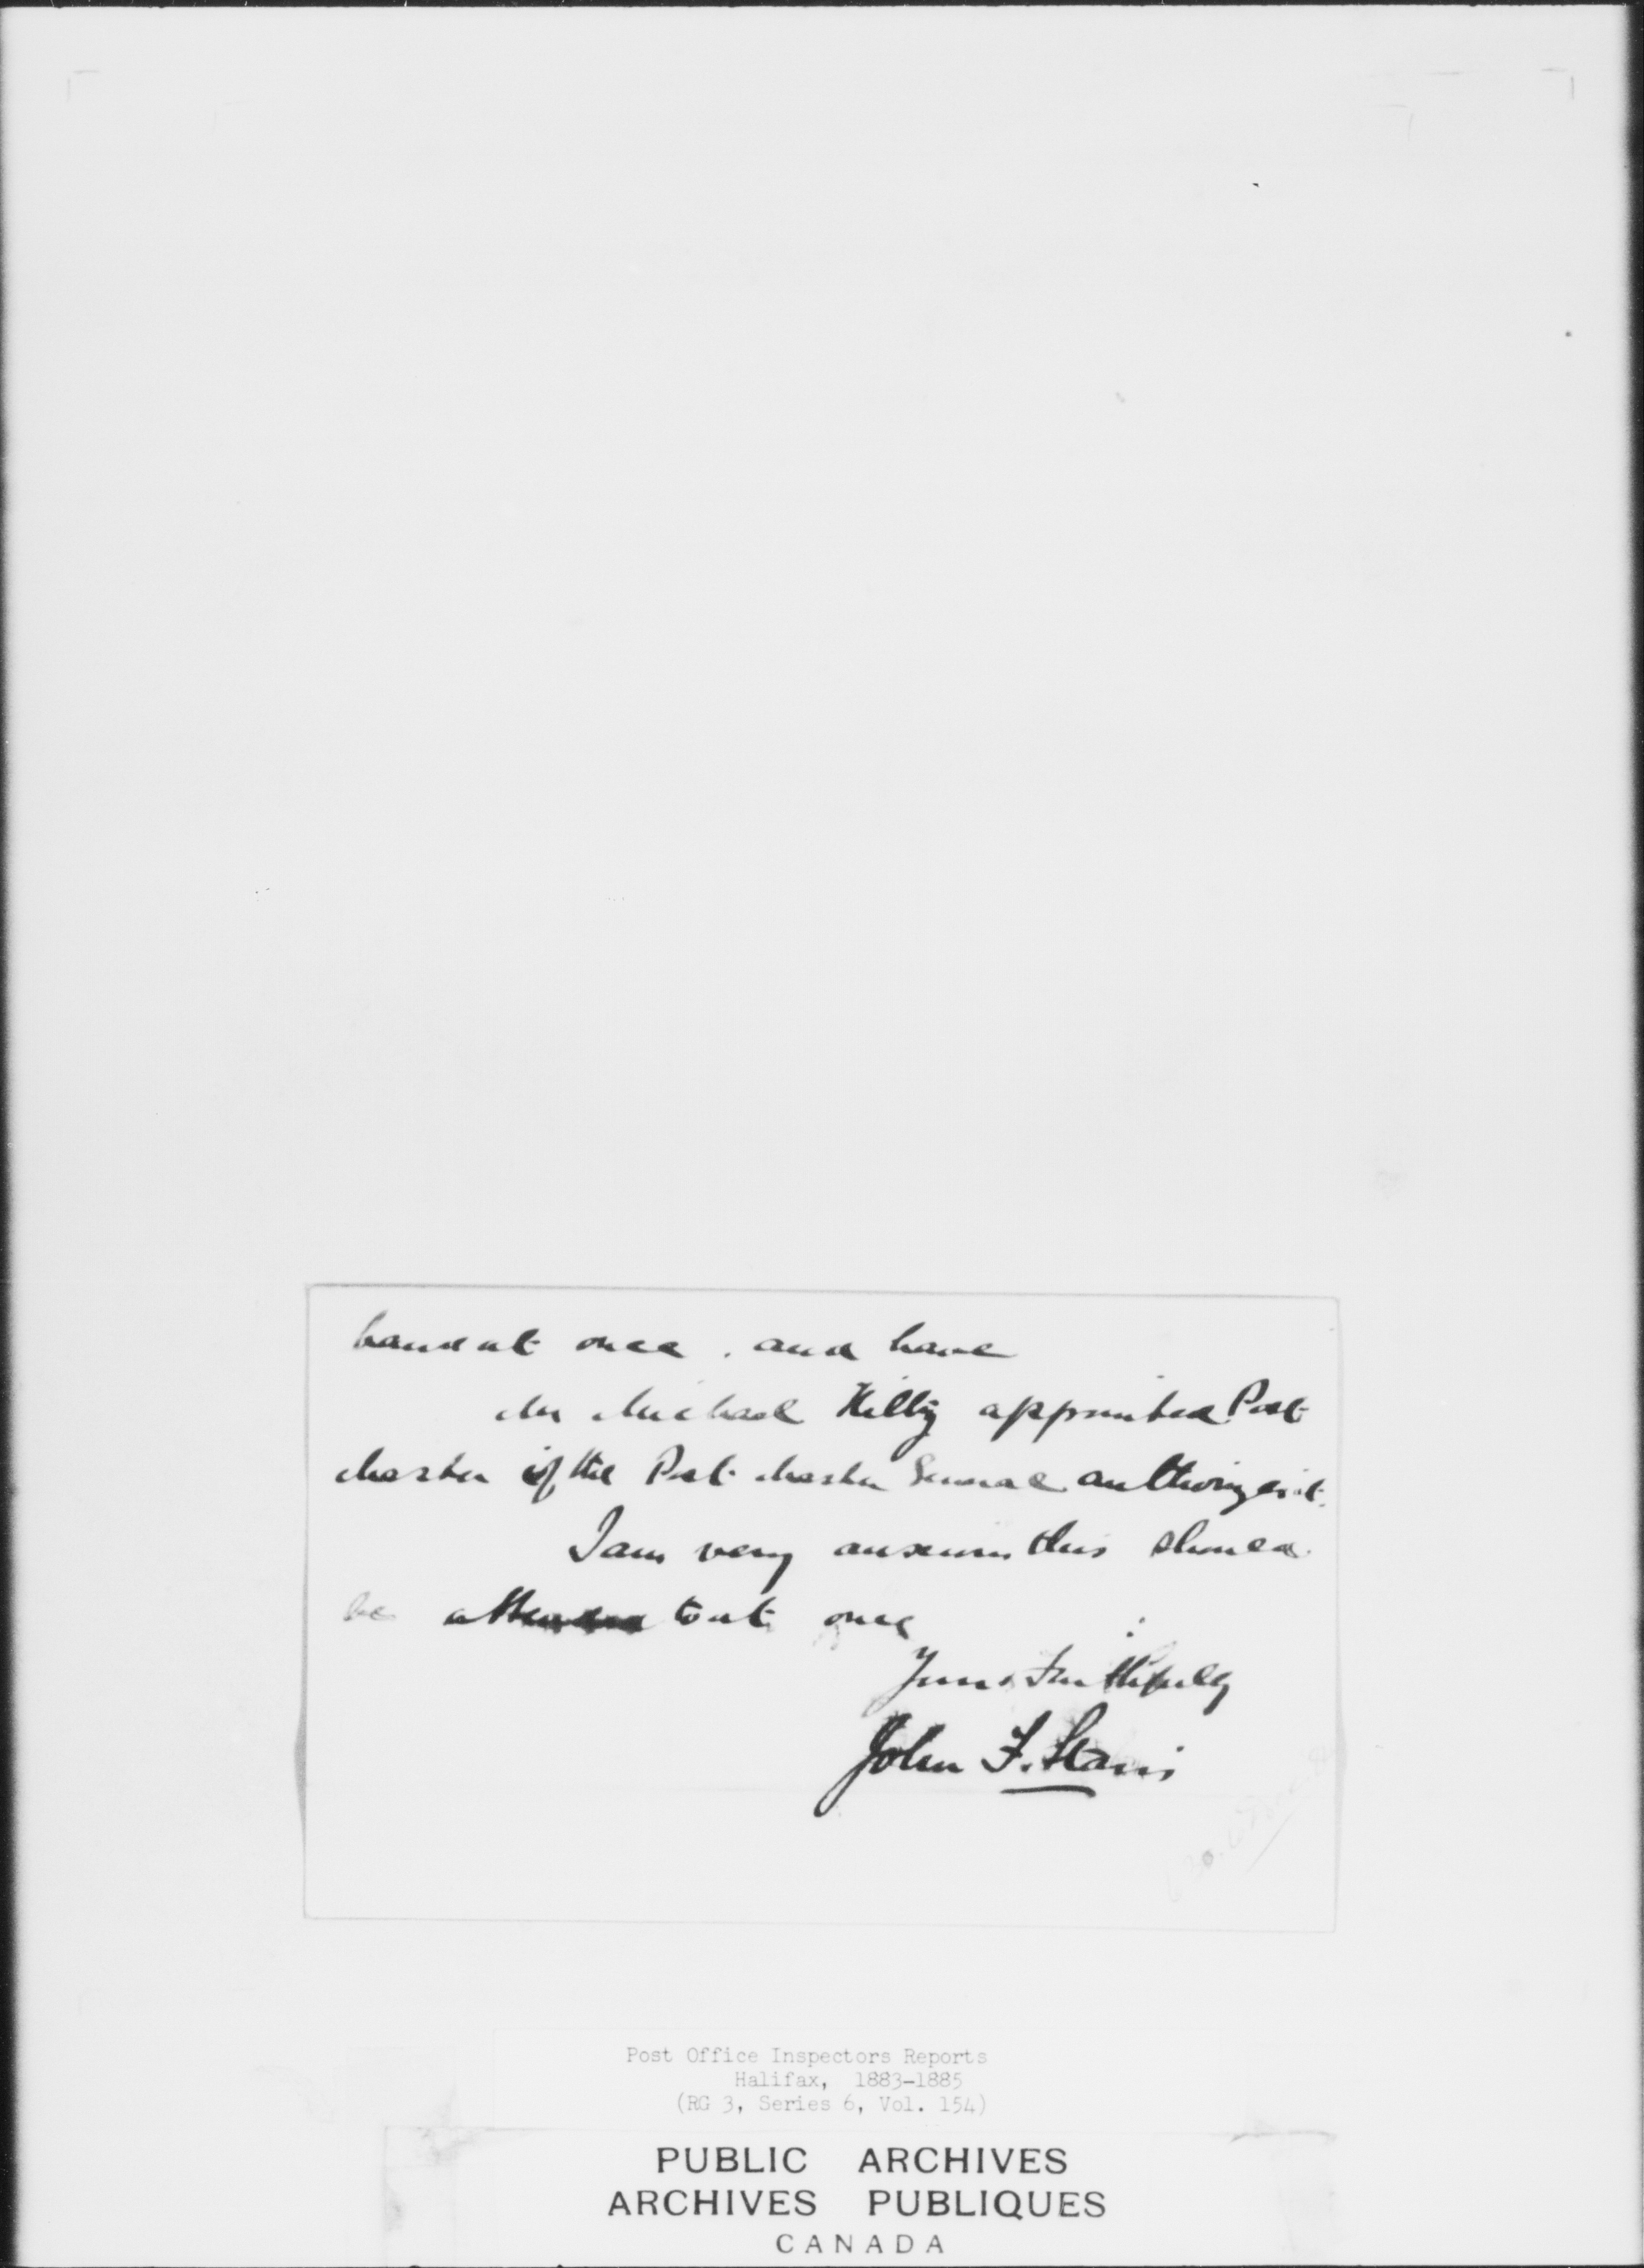 hand at once. and have
Mr Michael Kilby appointed Post
Master if the Post Master General authorizes it.
I am very anxious this should
be attended to at once
Yours Faithfully
John F. Stairs
Post Office Inspectors Reports
Halifax, 1883-1885
(RG 3, Series 6, Vol. 154)
PUBLIC ARCHIVES
ARCHIVES PUBLIQUES
CANADA